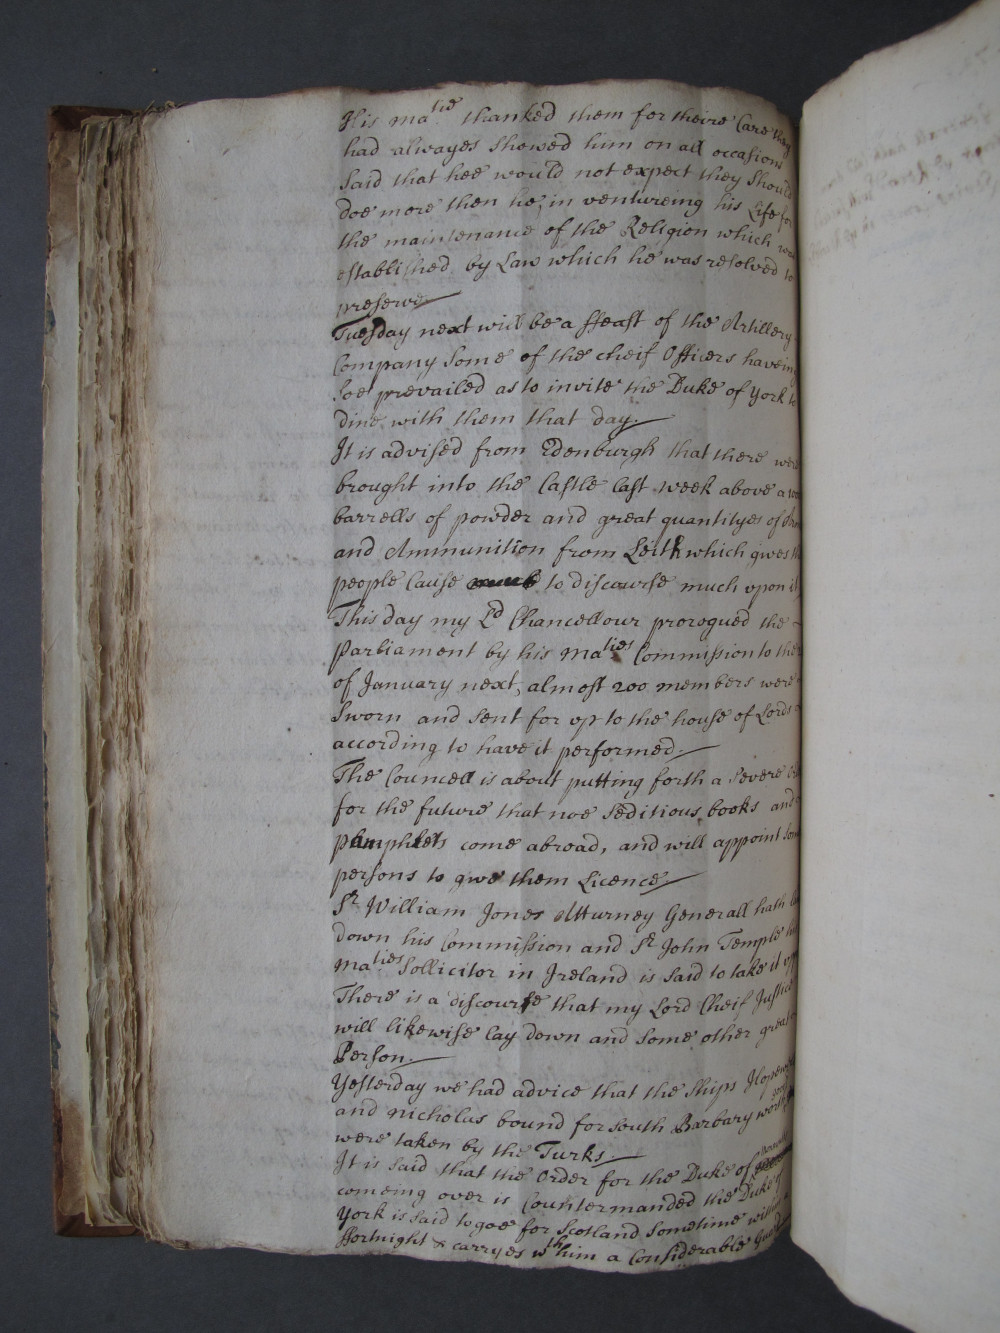 His ma.tie thanked them for theire Care they
had alwayes shewed him on all occasions
Said that hee would not expect they Should
doe more then he, in ventureing his Life for
the maintenance of the Religion which was
established by Law which he was resolved to
preserve
Tuesday next will be a ffeast of the Artillery
Company Some of the cheif Officers haveing
Soe prevailed as to invite the Duke of York to
dine with them that day.
It is advised from Edenburgh that there were
brought into the Castle last week above a 100
barrells of powder and great quantityes of
and Ammunition from Leith which gives the
people Cause to discourse much upon it
This day my Ld Chancellour prorogued the
Parliament by his Maties Commission to the
of January next, almost 200 members were
Sworn and sent for up to the house of Lords
according to have it performed.
The Councell is about putting forth a Severe
for the future that noe Seditious books and
Pamphlets come abroad, and will appoint Some
persons to give them Licence
Sr William Jones Atturney Generall hath
down his Commission and Sr John Temple his
Maties Sollicitor in Ireland is Said to take it
There is a discourse that my Lord Cheif Justice
will likewise lay down and Some other great
Person.
Yesterday we had advice that the Ships Hopewell
and Nicholas bound for South Barbary
were taken by the Turks.
It is Said that the Order for the Duke of
comeing over is Countermanded the Duke of
York is Said to goe for Scotland Sometime within
ffortnight & carryes wth him a Considerable Guard